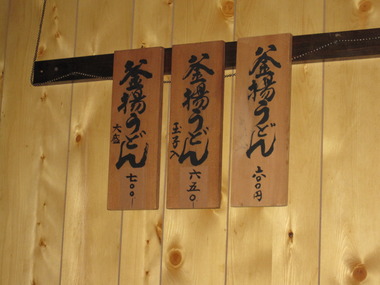 釜揚うどん
六〇〇円
釜揚うどん
玉子入
六五〇-
釜揚うどん
大盛
七〇〇-